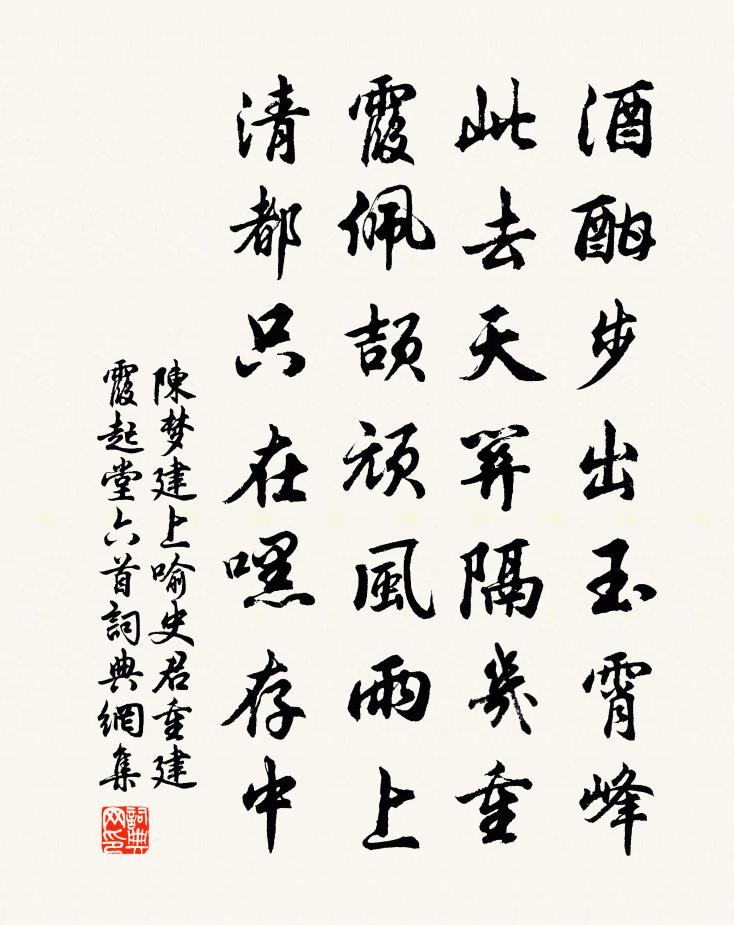 酒酣步出玉霄峰
此去天關隔幾重
霞佩頡頏風雨上
清都只在嘿存中
陳梦建上喻史君重建
霞起堂六首詞典網集
詞典网印